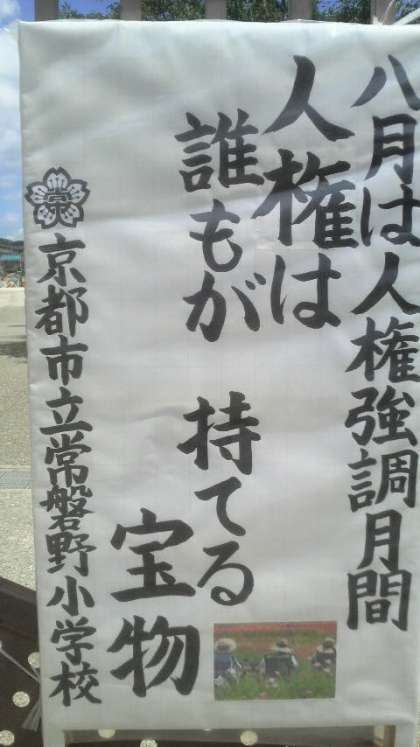 八月は人権強調月間
人権は
誰もが 持てる
宝物
京都市立常磐野小学校